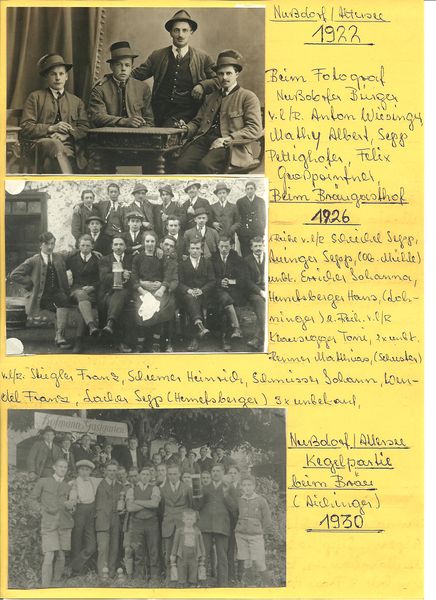 Nußdorf/Attersee
1922
Beim Fotograf
Nußdorfer Bürger
v.l/R. Anton Wiesinger
Mathy Albert, Sepp
Pettighofer, Felix
Großpointner,
Beim Bräugasthof
1926
1 Reihe v.l/R Scheichl Sepp,
Auinger Sepp, (Ob. Mühle)
unbt. Johanna,
Hemetsberger Hans, (Loh-
ninger) 2. Reih. v.l/R
Toni, 2x unbt.
Renner Matthias, (Schuster)
v.l/R. Stiegler Franz, Schiemer Heinrich, Johann,
Franz, Locher Sepp (Hemetsberger) 3x unbekant,
Hofmann's Gastgarten
Nußdorf/Attersee
Kegelpartie
beim Bräu
(Aichinger)
1930